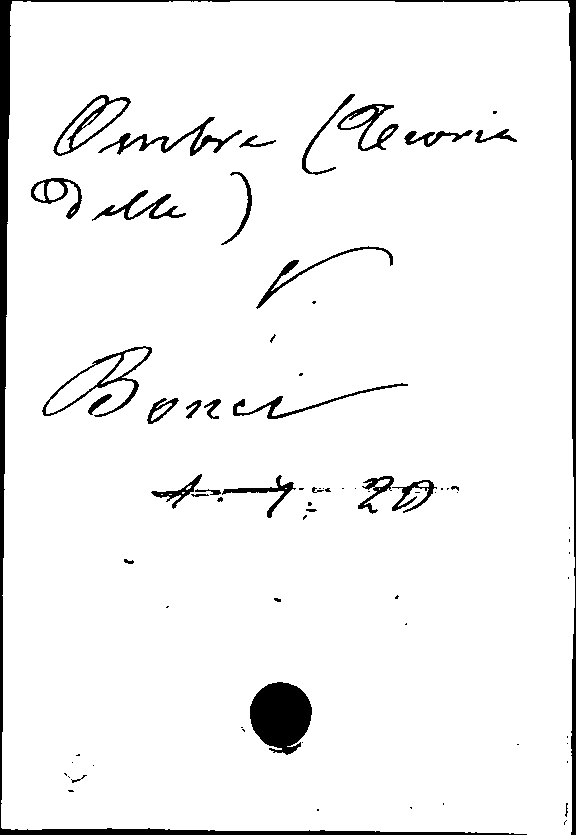 Ombra (Teoria
Delle)
V.
Bonci
1. 4. 20